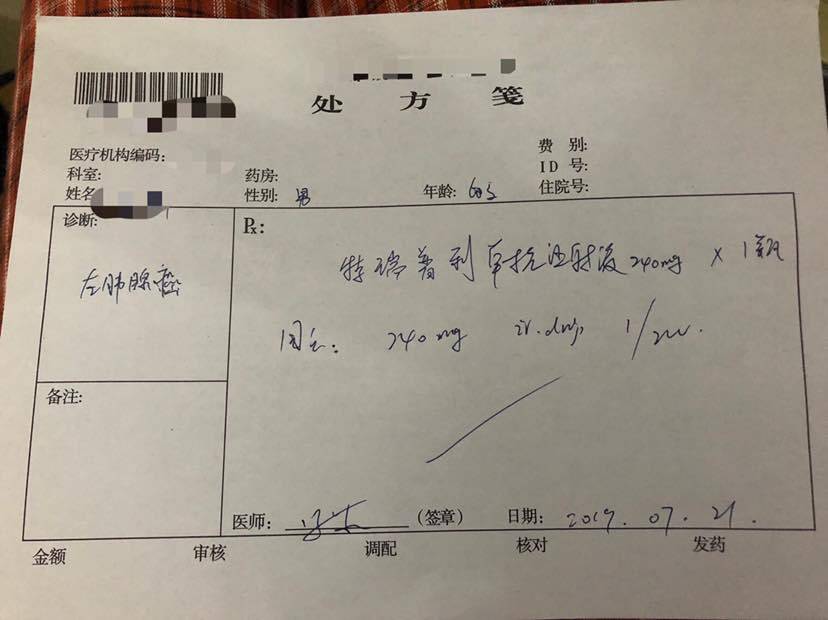 处方笺
医疗机构编码:
费 别:
科室:
药房:
ID 号:
姓名
性别: 男
年龄:
住院号:
诊断:
左肺腺癌
Rx:
特瑞普利单抗注射液 240mg × 1瓶
用法: 240mg iv.drip 1/2w.
备注:
医师:
(签章)
日期: 2019.07.21.
金额
审核
调配
核对
发药